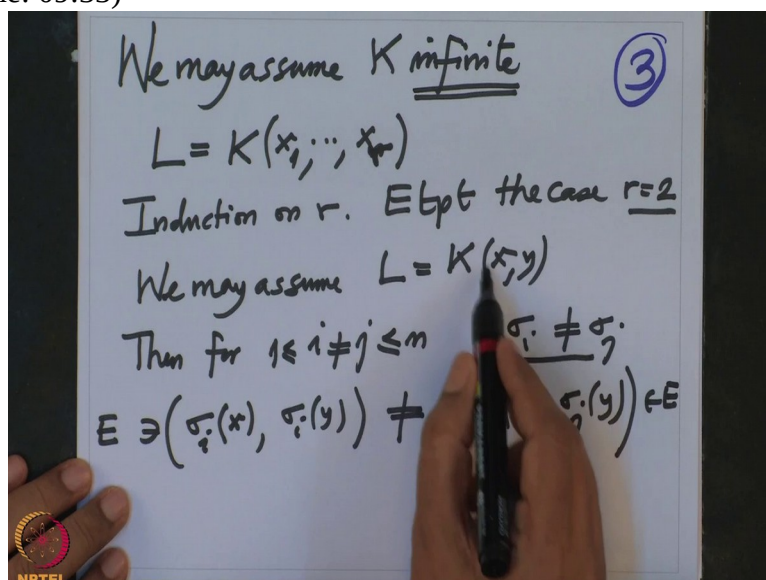 We may assume K infinite
3
L = K(x₁, ..., xᵣ)
Induction on r. Etpt the case r=2
We may assume L = K(x, y)
Then for 1 ≤ i ≠ j ≤ n σᵢ ≠ σⱼ
E ∋ (σᵢ(x), σᵢ(y)) ≠ σⱼ(y)) ∈ E
NPTEL